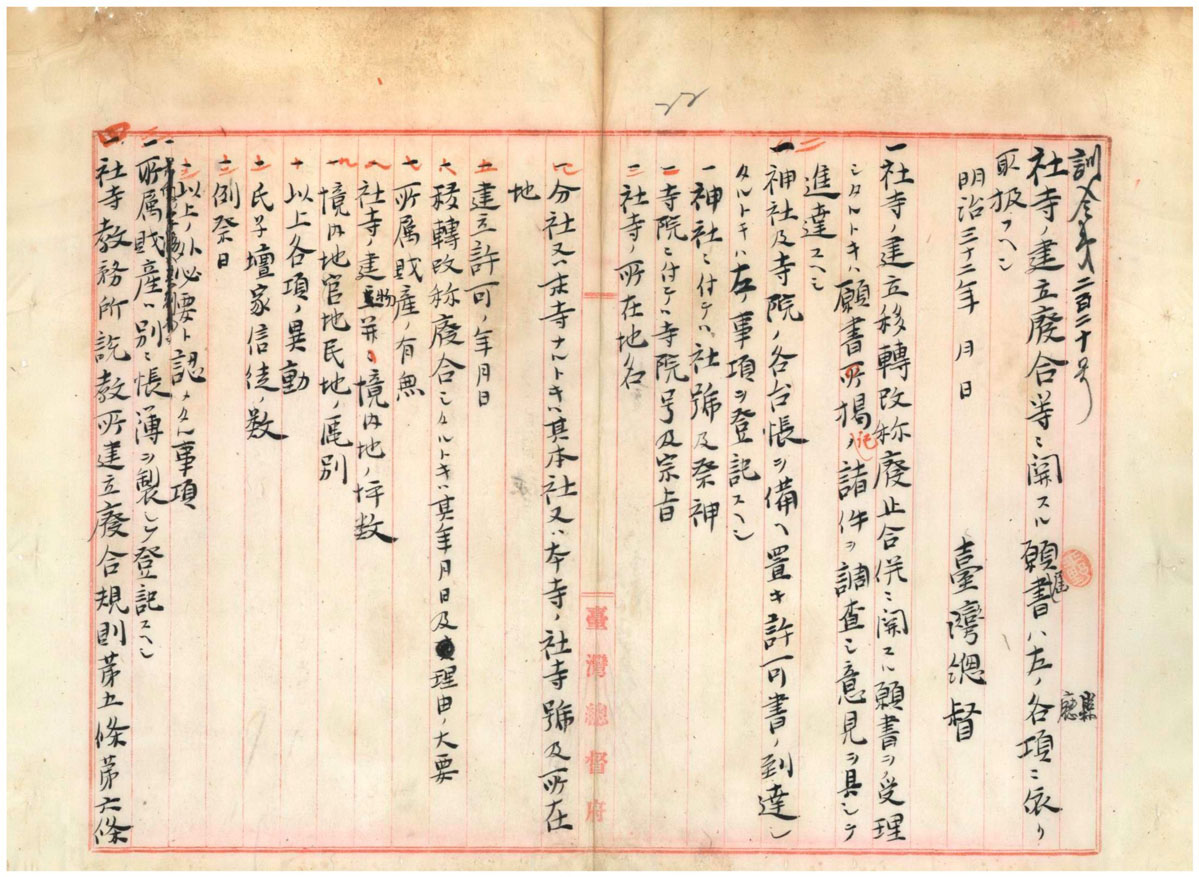 22
訓令第二百二十号
縣
廳
社寺ノ建立廢合等ニ関スル願書届ハ左ノ各項ニ依リ
取扱フヘシ
明治三十二年 月 日
臺灣總督
一社寺ノ建立移轉改称廢止合併ニ関スル願書ヲ受理
シタルトキハ願書所掲記ノ諸件ヲ調査シ意見ヲ具シテ
進達スヘシ
二神社及寺院ノ各台帳ヲ備ヘ置キ許可書ノ到達シ
タルトキハ左ノ事項ヲ登記スヘシ
一神社ニ付テハ社號及祭神
二寺院ニ付テハ寺院号及宗旨
三社寺ノ所在地名
分社又ハ末寺ナルトキハ其本社又ハ本寺ノ社寺號及所在
地
五建立許可ノ年月日
六移轉改称廢合シタルトキハ其年月日及理由ノ大要
七所属財産ノ有無
八社寺ノ建物并ニ境内地ノ坪数
九境内地官地民地ノ区別
十以上各項ノ異動
氏子壇家信徒ノ数
例祭日
以上ノ外必要ト認メタル事項
所属財産ハ別ニ帳簿ヲ製シテ登記スヘシ
四社寺教務所説教所建立廢合規則第五條第六條
臺灣總督府